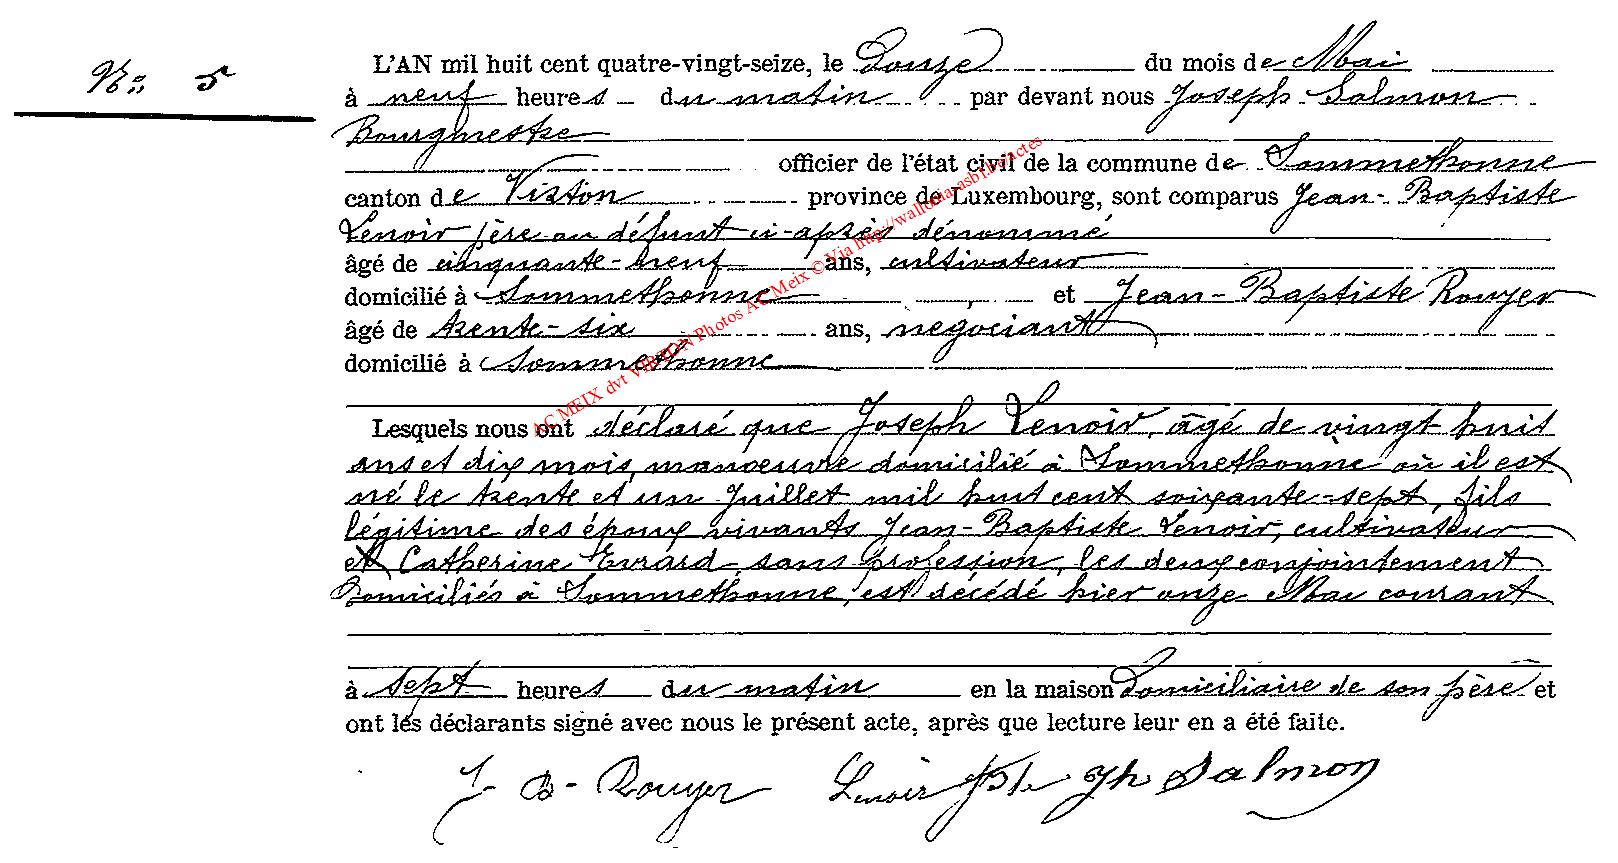 No: 5
L'AN mil huit cent quatre-vingt-seize, le Douze du mois de Mai
à neuf heures du matin par devant nous Joseph Salmon
Bourgmestre
officier de l'état civil de la commune de Sommethonne
canton de Virton province de Luxembourg, sont comparus Jean-Baptiste
Lenoir père au défunt ci-après dénommé
âgé de cinquante-neuf ans, cultivateur
domicilié à Sommethonne et Jean-Baptiste Rouyer
âgé de trente-six ans, négociant
domicilié à Sommethonne
AC MEIX dvt VIRTON Photos AC Meix © Via http://wallonia-asbl.be/actes
Lesquels nous ont déclaré que Joseph Lenoir, âgé de vingt huit
ans et dix mois, manœuvre domicilié à Sommethonne où il est
né le trente et un Juillet mil huit cent soixante-sept, fils
légitime des époux vivants Jean-Baptiste Lenoir, cultivateur
et Catherine Evrard, sans profession, les deux conjointement
Domiciliés à Sommethonne, est décédé hier onze Mai courant
à sept heures du matin en la maison Domiciliaire de son père et
ont les déclarants signé avec nous le présent acte, après que lecture leur en a été faite.
J-B-Rouyer Lenoir JBte Jh Salmon